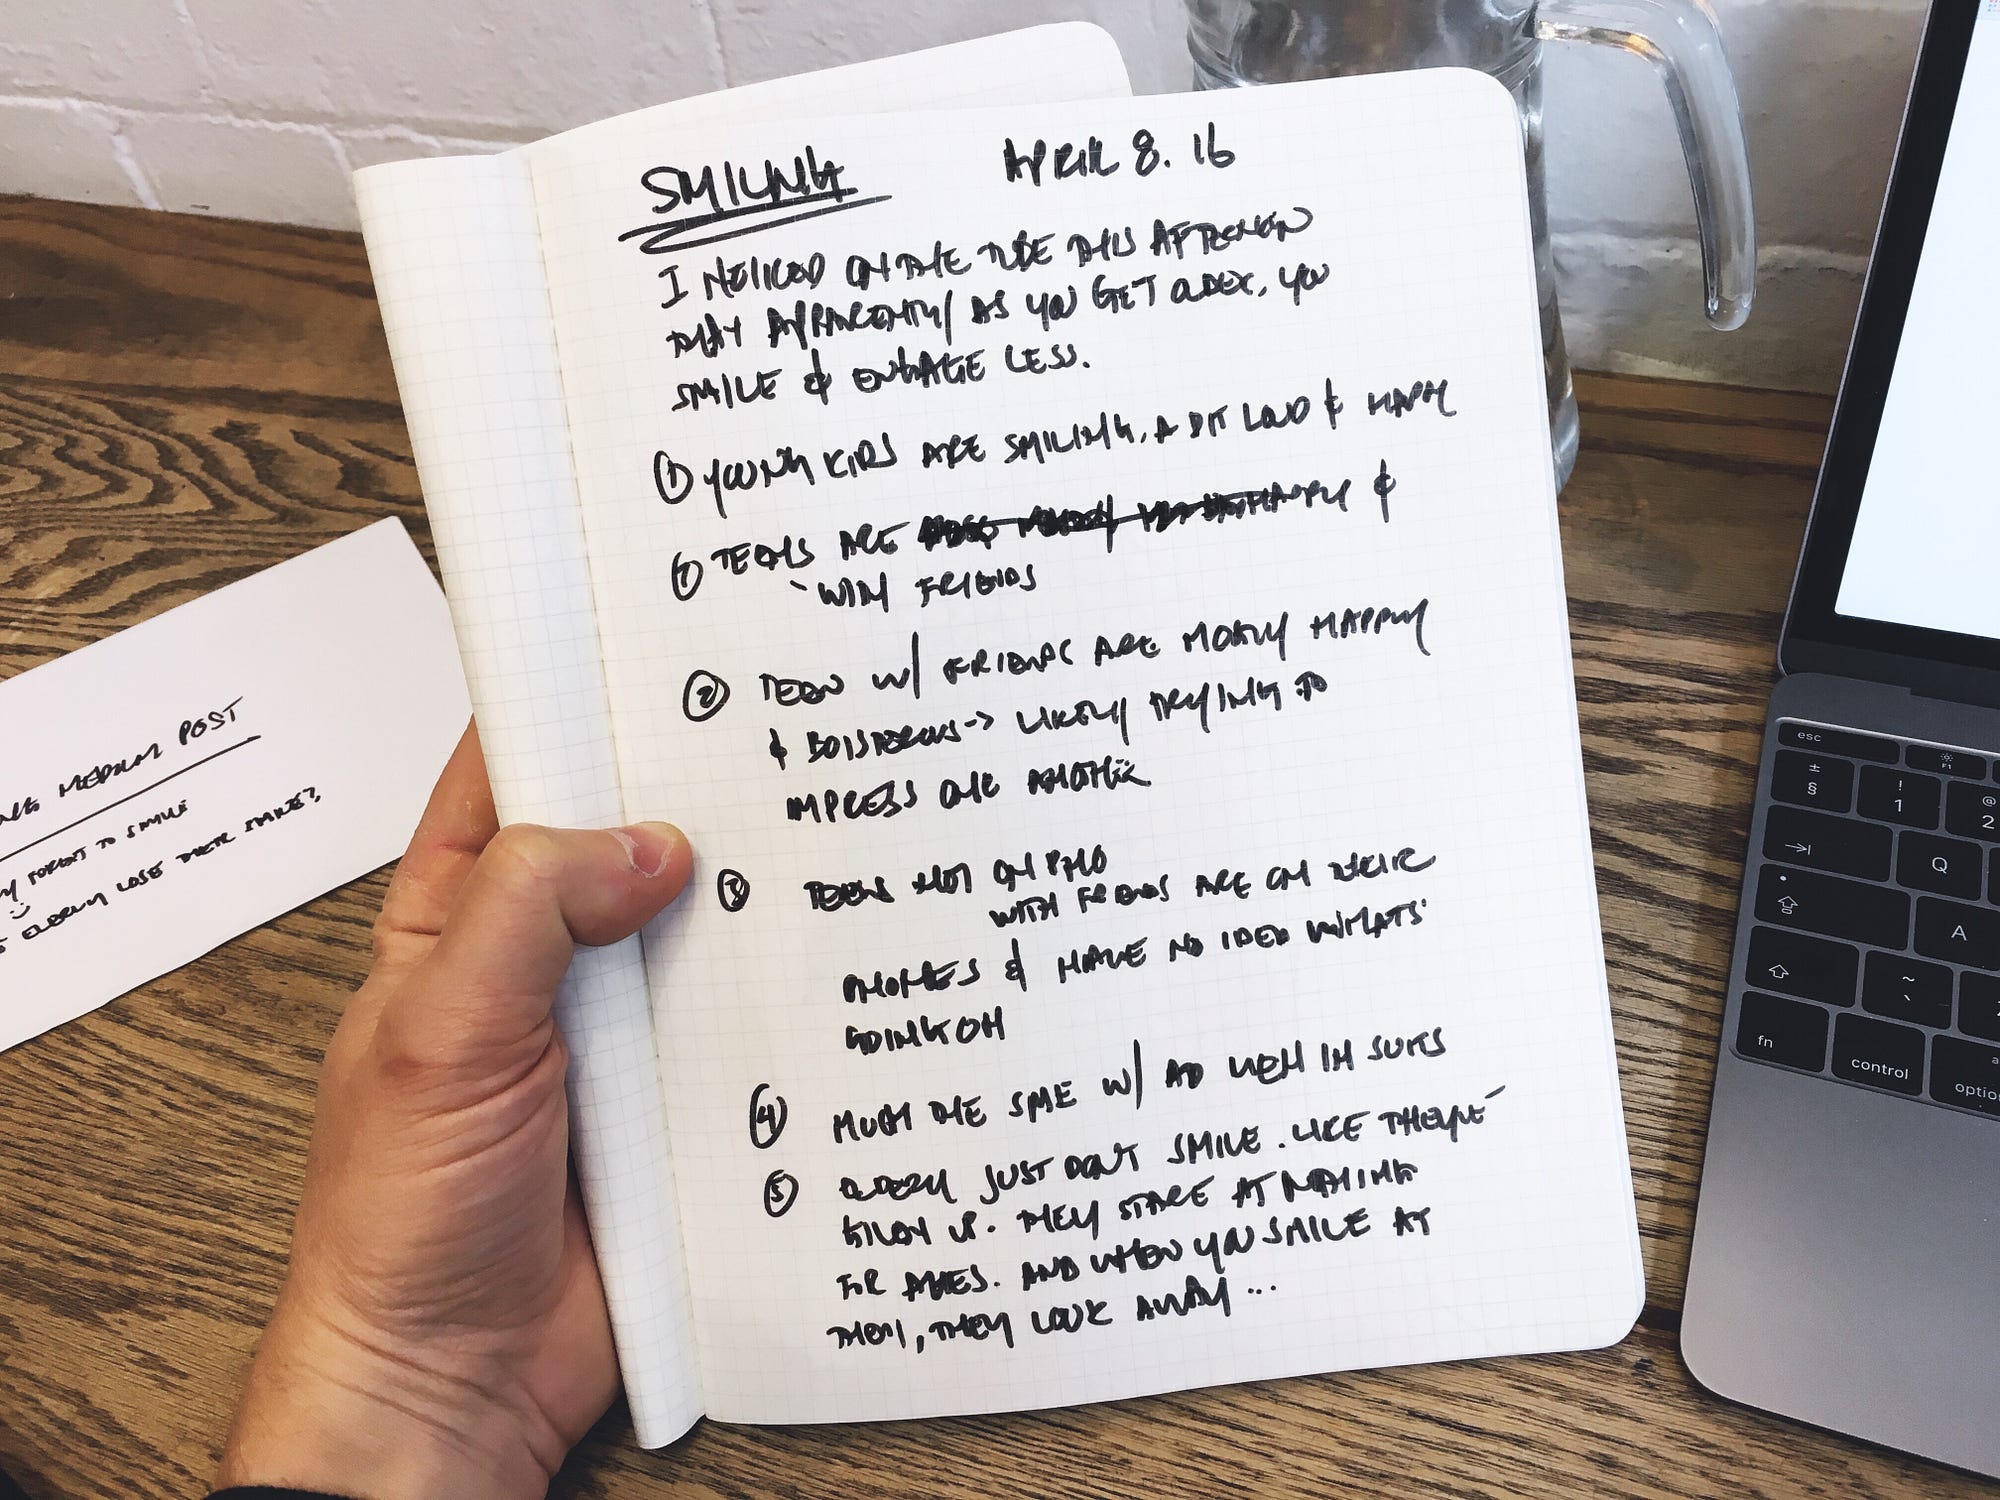 SMILING
APRIL 8. 16
I NOTICED ON THE TUBE THIS AFTERNOON
THAT APPARENTLY AS YOU GET OLDER, YOU
SMILE & ENGAGE LESS.
① YOUNG KIDS ARE SMILING, A BIT LOUD & HAPPY
① TEENS ARE HAPPY &
WITH FRIENDS
② TEEN W/ FRIENDS ARE MOSTLY HAPPY
& BOISTEROUS -> LIKELY TRYING TO
IMPRESS ONE ANOTHER
③ TEENS NOT ON PHO
WITH FRIENDS ARE ON THEIR
PHONES & HAVE NO IDEA WHATS'
GOING ON
④ MUCH THE SAME W/ AD MEN IN SUITS
⑤ ELDERLY JUST DON'T SMILE. LIKE THEY'VE
GIVEN UP. THEY STARE AT NOTHING
FOR AGES. AND WHEN YOU SMILE AT
THEM, THEY LOOK AWAY ...
MEDIUM POST
FORGET TO SMILE
ELDERLY LOSE THEIR SMILE?
esc
F1
±
§
!
1
@
2
Q
A
~
`
fn
control